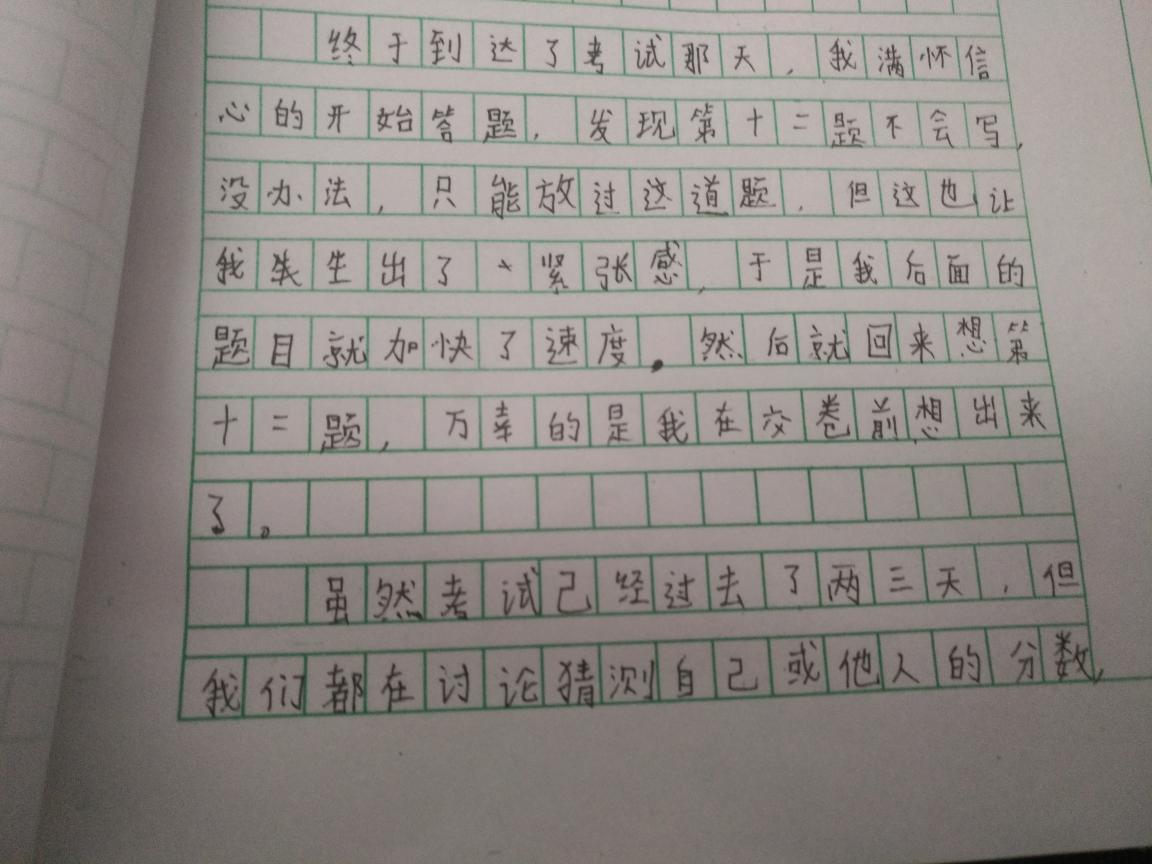 终于到达了考试那天，我满怀信
心的开始答题，发现第十二题不会写，
没办法，只能放过这道题，但这也让
我生出了紧张感，于是我后面的
题目就加快了速度。然后就回来想第
十二题，万幸的是我在交卷前想出来
了。
虽然考试已经过去了两三天，但
我们都在讨论猜测自己或他人的分数，